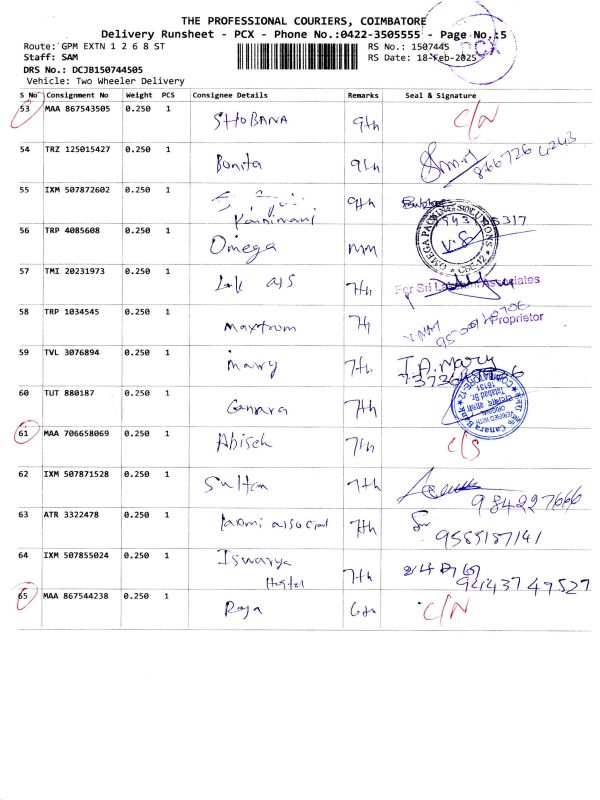 THE PROFESSIONAL COURIERS, COIMBATORE
Delivery Runsheet - PCX - Phone No.:0422-3505555 - Page No.:5
PCX
Route: GPM EXTN 1 2 6 8 ST
RS No.: 1507445
Staff: SAM
RS Date: 18-Feb-2025
DRS No.: DCJB150744505
Vehicle: Two Wheeler Delivery
S No Consignment No Weight PCS Consignee Details Remarks Seal & Signature
53 MAA 867543505 0.250 1 SHOBANA 9th C/N
54 TRZ 125015427 0.250 1 Bonita 9th
55 IXM 507872602 0.250 1 Kanimani 9th
56 TRP 4085608 0.250 1 Omega OMEGA PACKING SOLUTIONS CBE-12
57 TMI 20231973 0.250 1 7th For Sri Lakshmi Associates
Proprietor
58 TRP 1034545 0.250 1 Maxtrom 7th
59 TVL 3076894 0.250 1 Mary 7th J.A. Mary
60 TUT 880187 0.250 1 Canara 7th VERIFIED WITH ORIGINAL
61 MAA 706658069 0.250 1 Abisek 7th C/S
62 IXM 507871528 0.250 1 Sultan 7th
984227666
63 ATR 3322478 0.250 1 laxmi associal 7th
9585187141
64 IXM 507855024 0.250 1 Iswarya Hostel 7th
9443749527
65 MAA 867544238 0.250 1 Raja 6th C/N